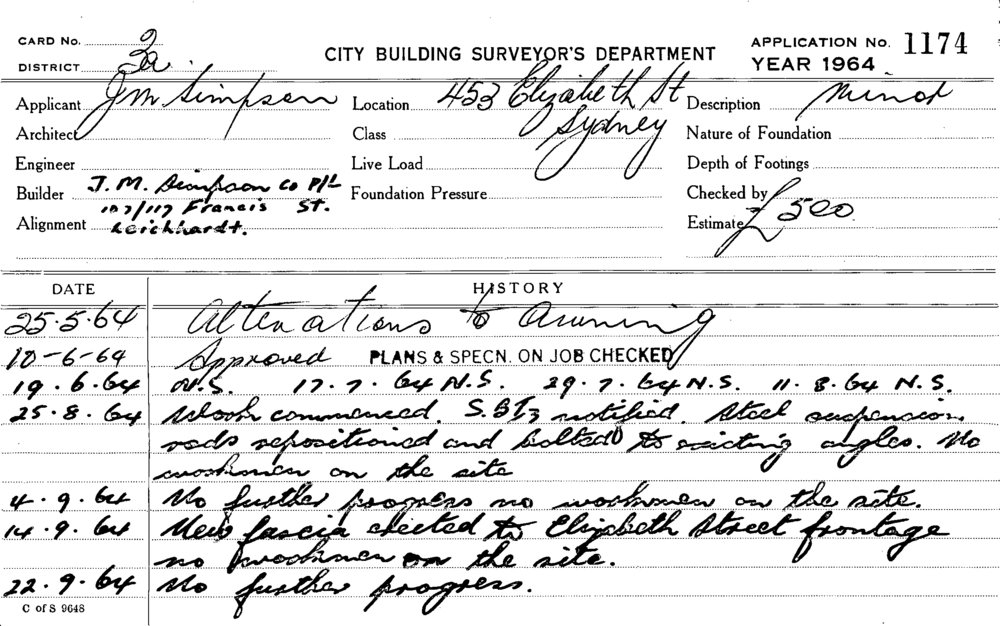 CARD No. 3a
DISTRICT
CITY BUILDING SURVEYOR'S DEPARTMENT
APPLICATION No. 1174
YEAR 1964
Applicant J M Simpson
Location 453 Elizabeth St
Sydney
Description Minor
Architect
Class
Nature of Foundation
Engineer
Live Load
Depth of Footings
Builder J. M. Simpson Co P/L
107/117 Francis St.
Leichhardt.
Foundation Pressure
Checked by
Alignment
Estimate £500
DATE HISTORY
25.5.64 Alterations to Awning
10-6-64 Approved PLANS & SPECN. ON JOB CHECKED
19.6.64 N.S. 17.7.64 N.S. 29.7.64 N.S. 11.8.64 N.S.
25.8.64 Work commenced. notified. Steel suspension
rods repositioned and bolted to existing angles. No
workmen on the site
4.9.64 No further progress no workmen on the site.
14.9.64 New fascia erected to Elizabeth Street frontage
no workmen on the site.
22.9.64 No further progress.
C of S 9648